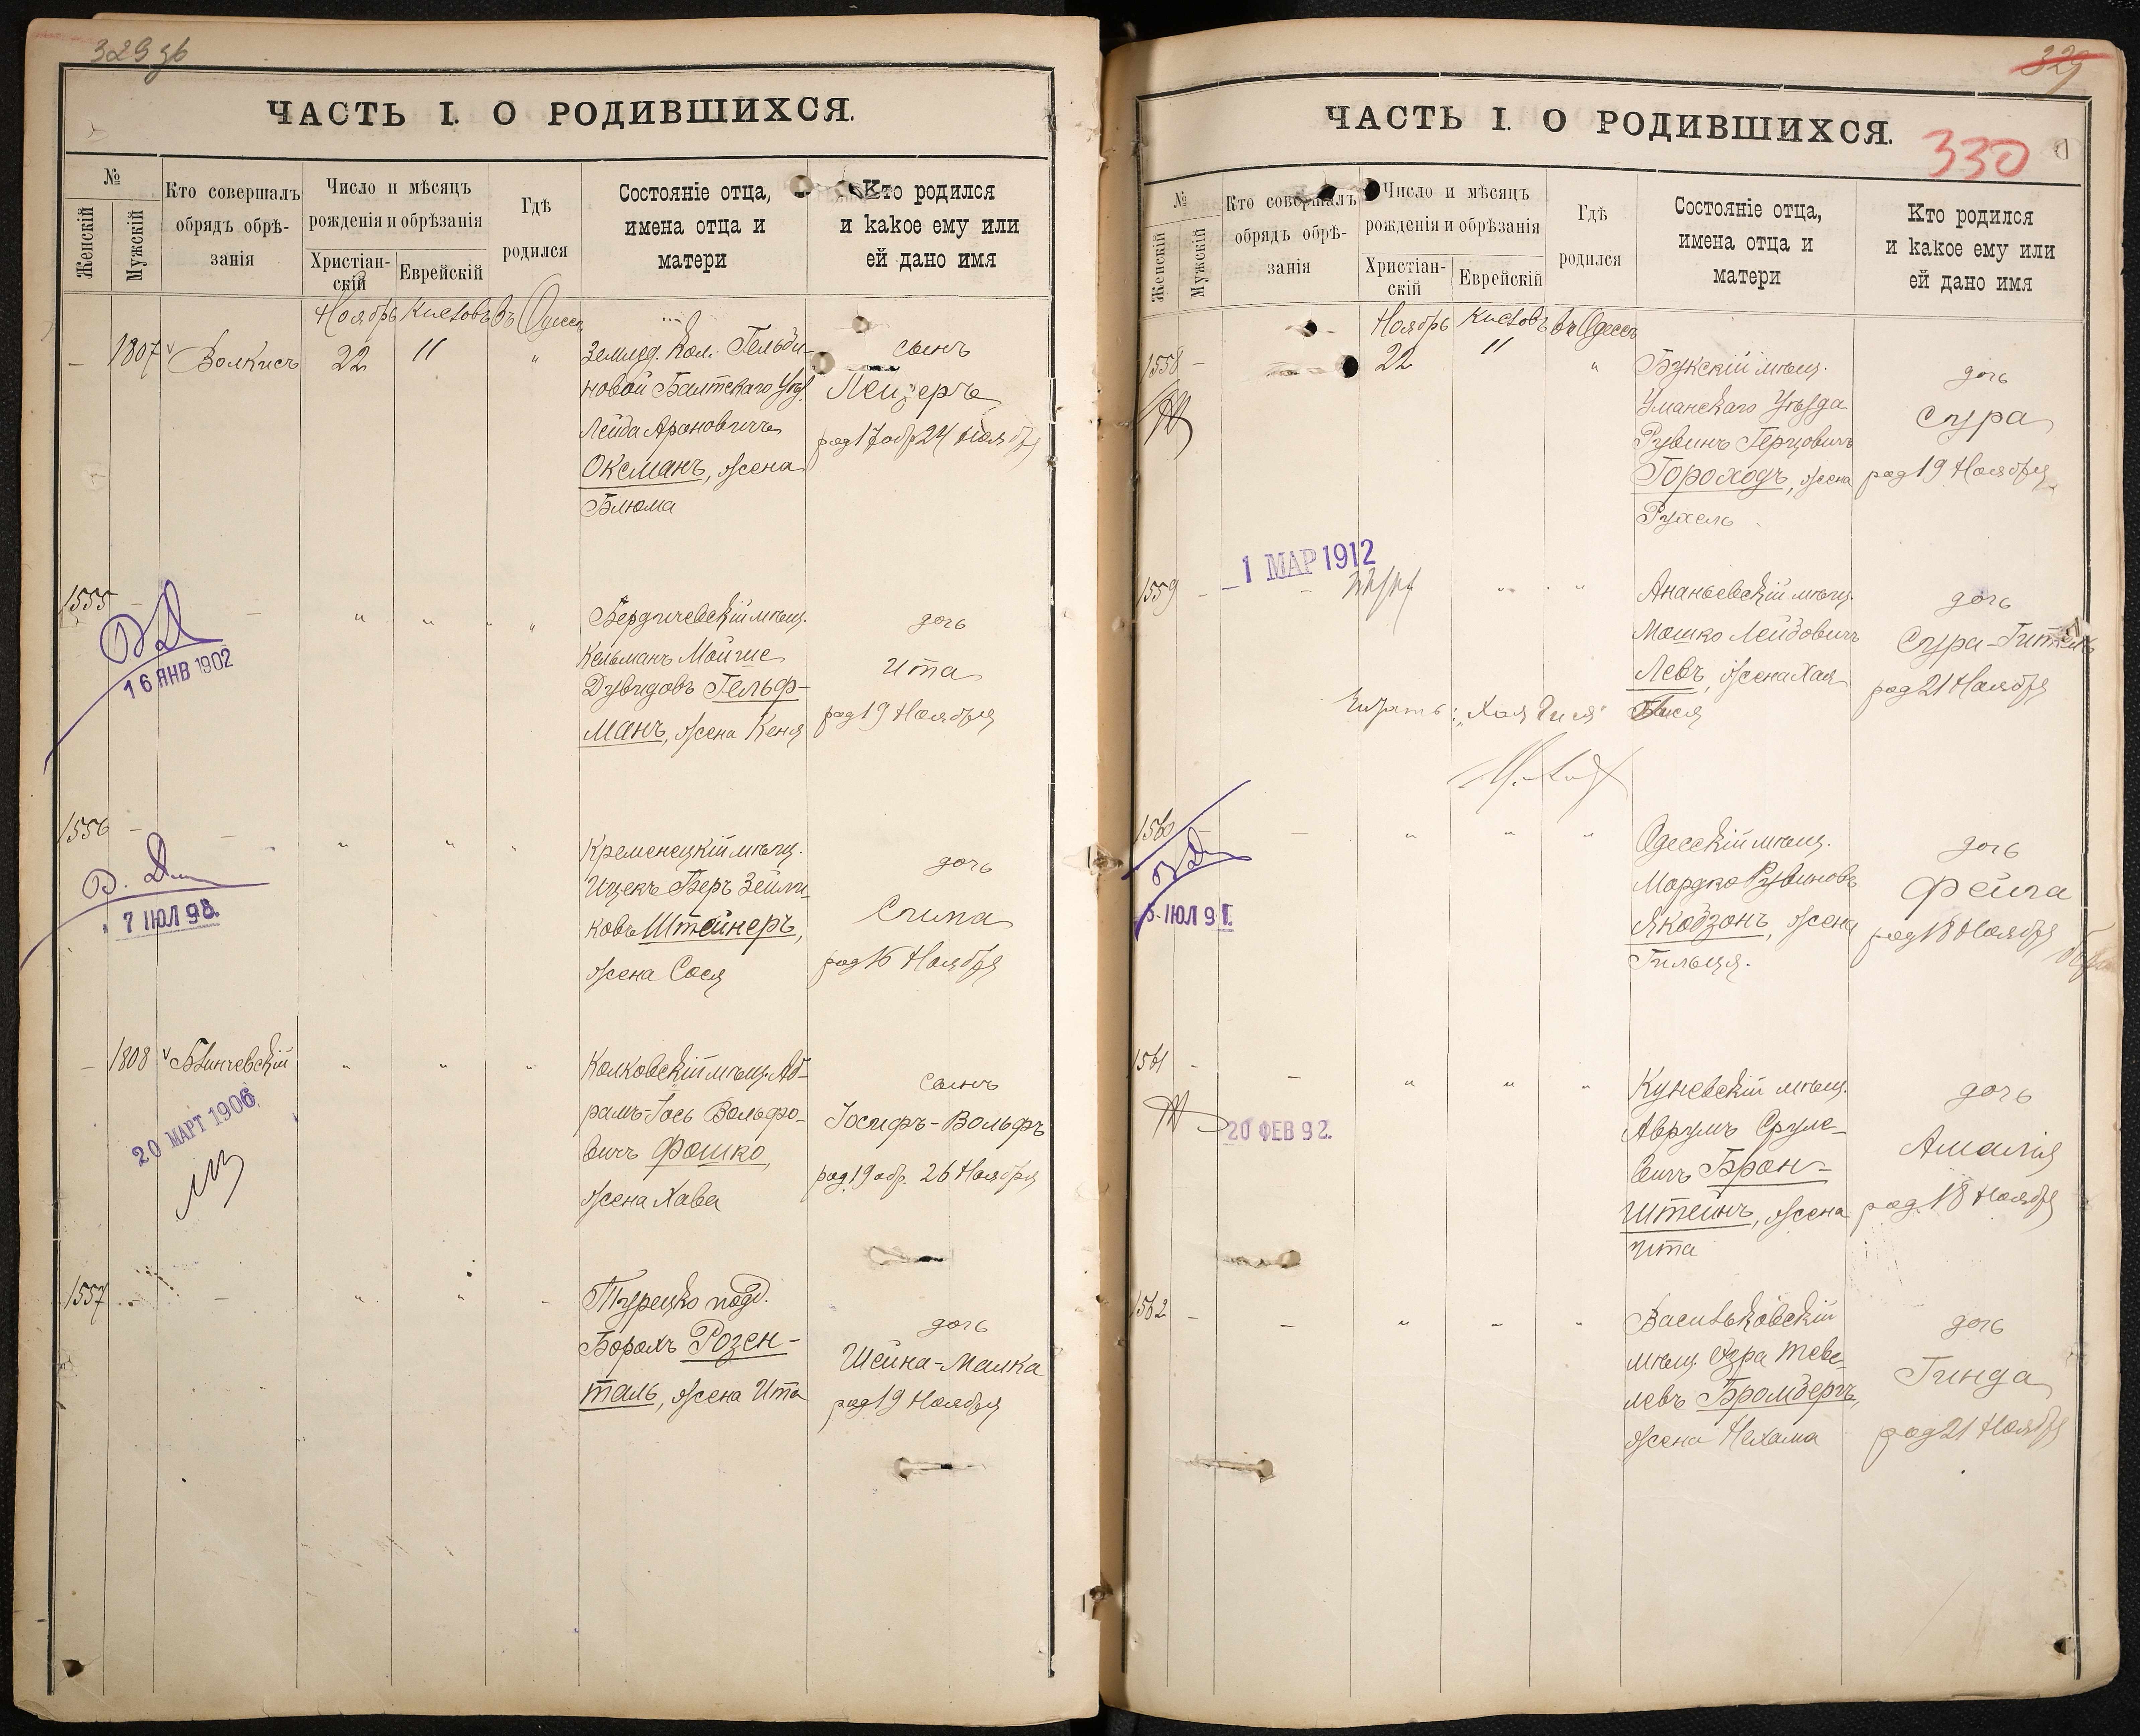 329 зб
ЧАСТЬ I. О РОДИВШИХСЯ.
№
Женскій
Мужскій
Кто совершалъ
обрядъ обрѣ-
занія
Число и мѣсяцъ
рожденія и обрѣзанія
Христіан-
скій
Еврейскій
Гдѣ
родился
Состояніе отца,
имена отца и
матери
Кто родился
и какое ему или
ей дано имя
Ноябрь Кислевъ въ Одессѣ
– 1807 Волкисъ 22 11 "
Землед. Кол. Гельби-
новой Балтскаго Уѣз.
Лейба Ароновичъ
Оксманъ, жена
Блюма
сынъ
Лейзеръ
род 17 обр 24 Ноября
1555 – – " " "
16 ЯНВ 1902
Бердичевскій мѣщ.
Кельманъ Мойше
Дувидовъ Гельф-
манъ, жена Кеня
дочь
Ита
род 19 Ноября
1556 – – " " "
7 ІЮЛ 98.
Кременецкій мѣщ.
Ицекъ Беръ Зейли-
ковъ Штейнеръ,
жена Сося
дочь
Сипа
род 16 Ноября
– 1808 Блинчевскій " " "
20 МАРТ 1906
Колковскій мѣщ. Аб-
рамъ-Іось Вольфо-
вичъ Фошко,
жена Хава
сынъ
Іосифъ-Вольфъ
род. 19 обр. 26 Ноября
1557 – – " " –
Турецко подд.
Борохъ Розен-
таль, жена Ита
дочь
Шейна-Малка
род 19 Ноября
329
ЧАСТЬ I. О РОДИВШИХСЯ.
330
№
Женскій
Мужскій
Кто совершалъ
обрядъ обрѣ-
занія
Число и мѣсяцъ
рожденія и обрѣзанія
Христіан-
скій
Еврейскій
Гдѣ
родился
Состояніе отца,
имена отца и
матери
Кто родился
и какое ему или
ей дано имя
Ноябрь Кислевъ въ Одессѣ
1558 – 22 11 "
Букскій мѣщ.
Уманскаго Уѣзда
Рувинъ Герцовичъ
Гороходъ, жена
Рухель
дочь
Сура
род 19 Ноября
1 МАР 1912
1559 – – " "
Ананьевскій мѣщ.
Мошко Лейбовичъ
Левъ, жена Хая
Гися
Читать: "Хая Гися"
дочь
Сура-Гиттель
род 21 Ноября
1560 – – " " "
5 ІЮЛ 91.
Одесскій мѣщ.
Мордко Рувиновъ
Якобзонъ, жена
Гильця.
дочь
Фейга
род 18 Ноября
1561 – – " " "
20 ФЕВ 92.
Куневскій мѣщ.
Аврумъ Сруле-
вичъ Брон-
штейнъ, жена
Ита
дочь
Амалія
род. 18 Ноября
1562 – – " " "
Васильковскій
мѣщ. Эзра Теве-
левъ Бромбергъ,
жена Нехама
дочь
Гинда
род 21 Ноября